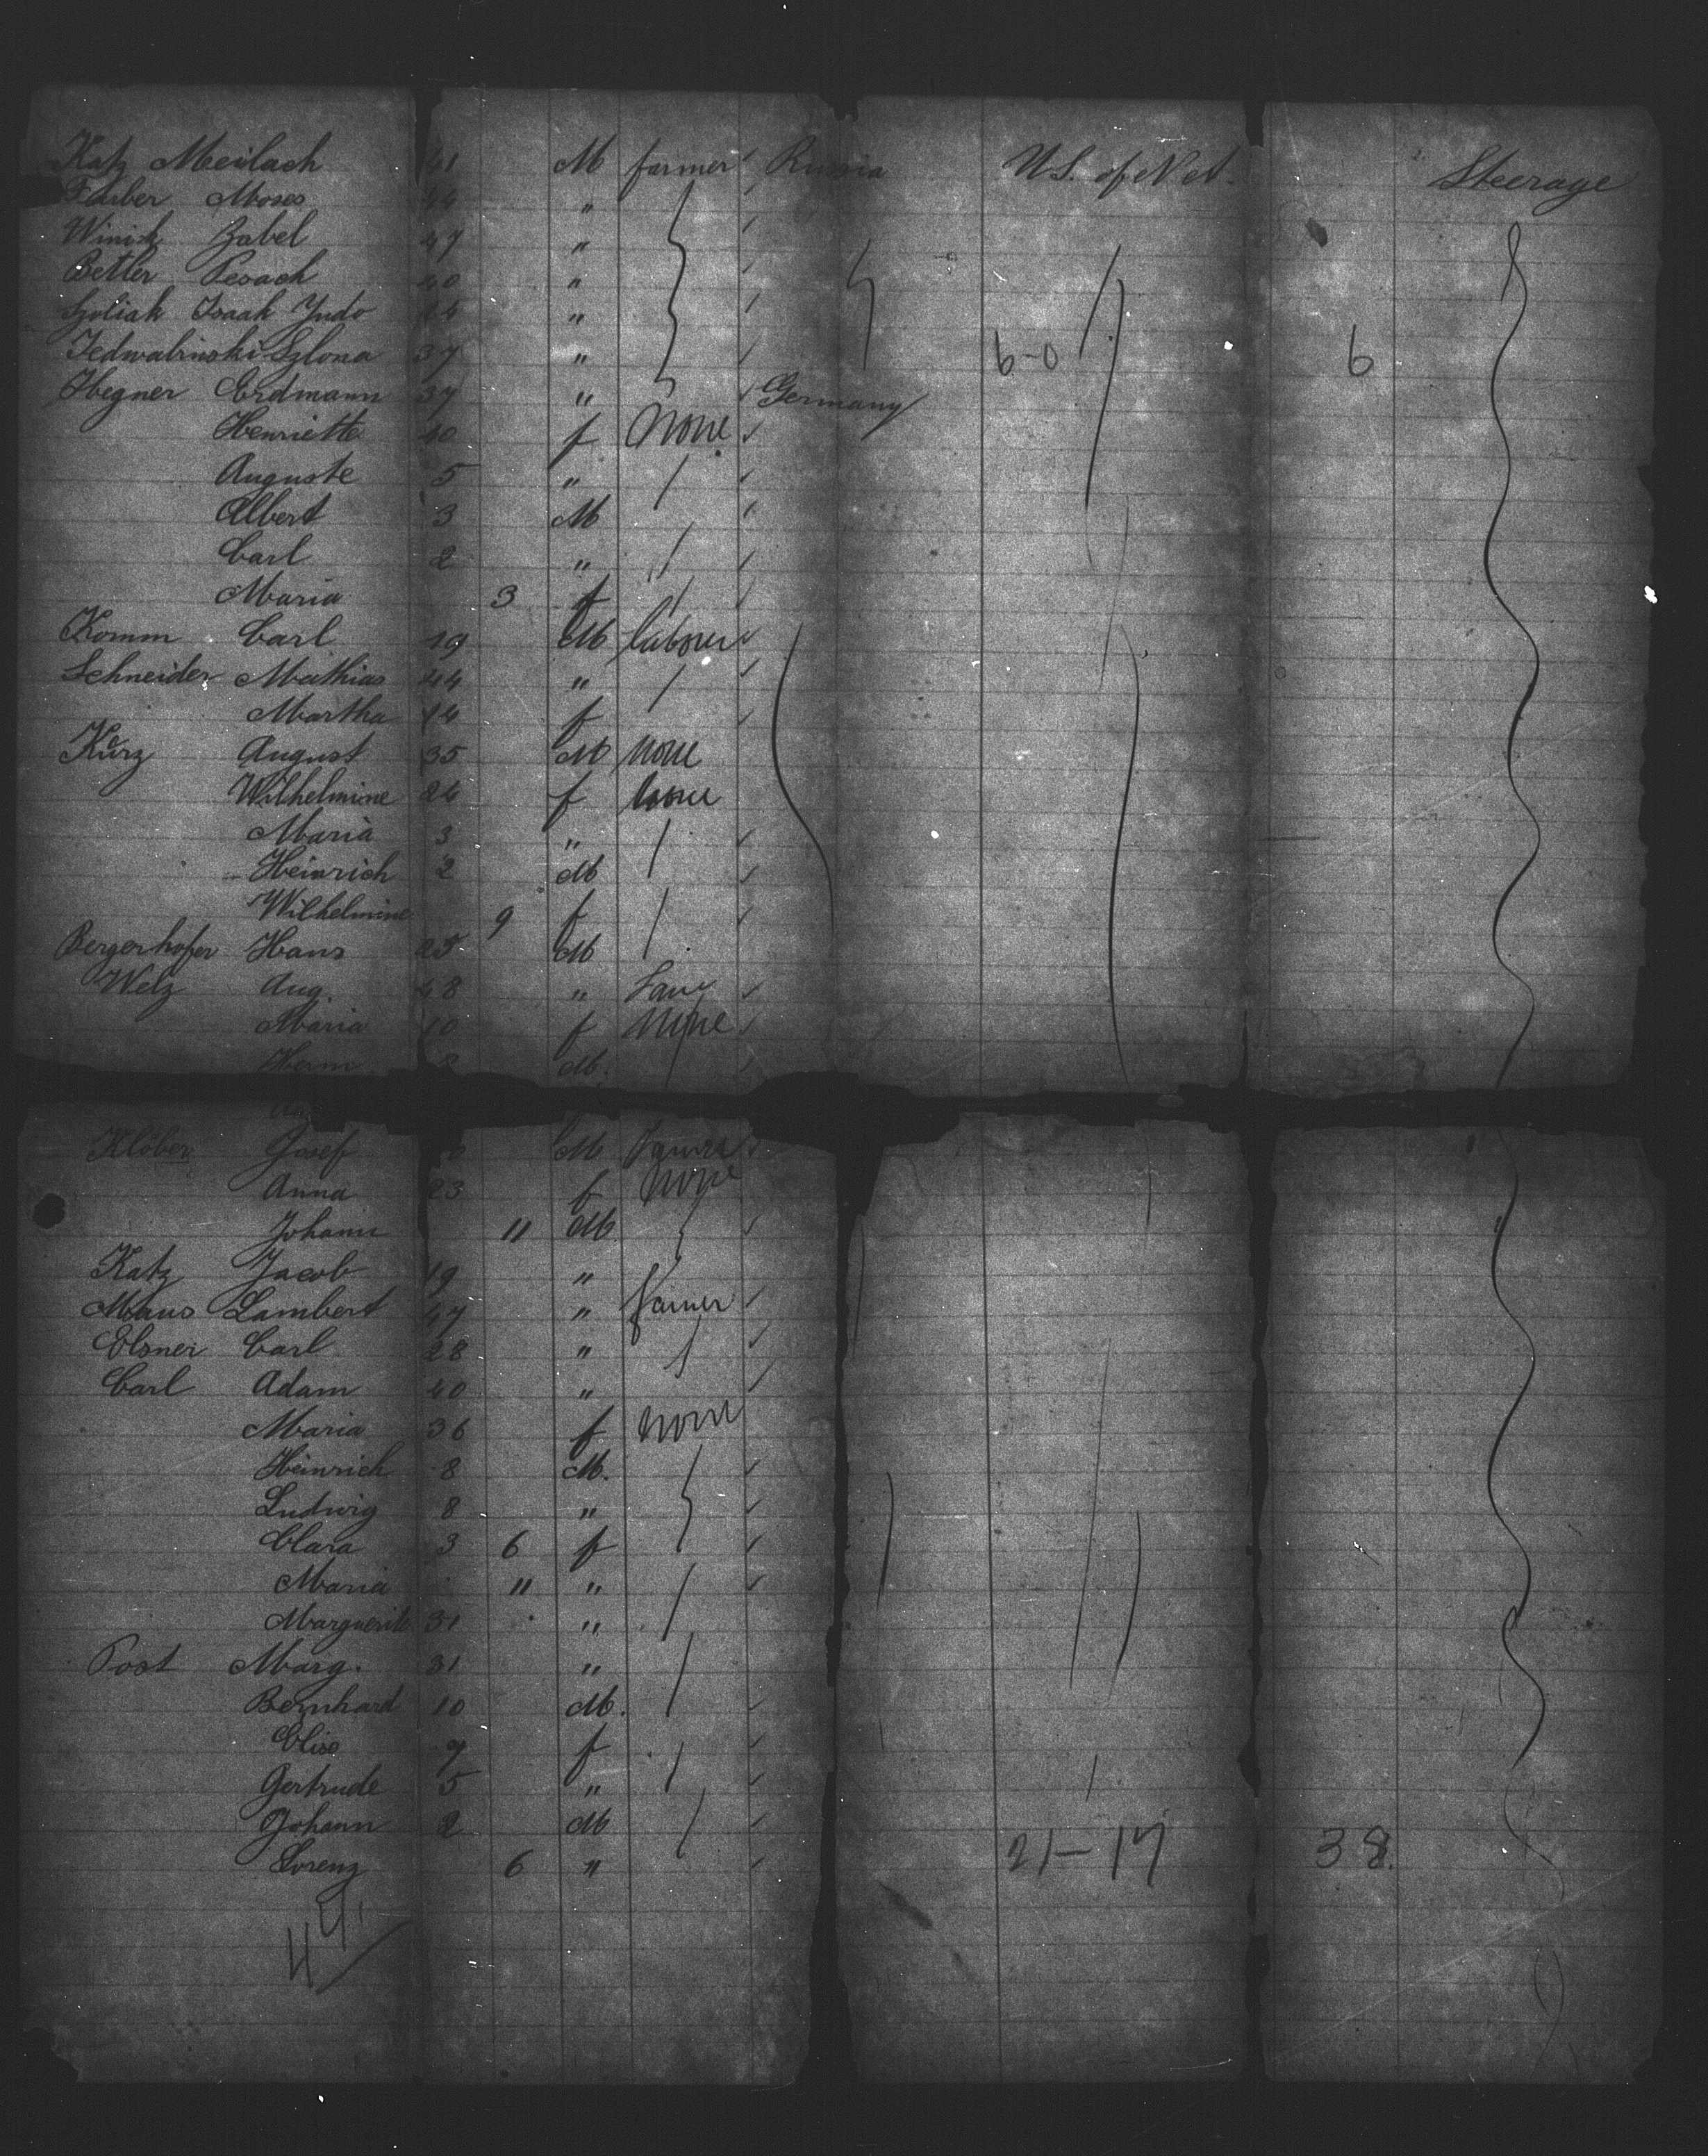 Katz Meilach 41 M farmer Russia U.S. of N. A. Steerage
Farber Moses 44 "
Winisk Zabel 47 "
Betler Pesach 40 "
Szoliak Isaak Judo 24 "
Jedwabinski Szlona 37 " 6-0 6
Hegner Erdmann 37 " Germany
Henriette 40 f none
Auguste 5 "
Albert 3 M
Carl 2 "
Maria 3 f
Komm Carl 19 M laborer
Schneider Mathias 44 "
Martha 14 f
Kurz August 35 M none
Wilhelmine 24 f none
Maria 3 "
Heinrich 2 M
Wilhelmine 9 f
Bergerhofer Hans 25 M
Welz Aug. 48 "
Maria 10 f none
Herm 8 M.
Klöber Josef M
Anna 23 f none
Johann 11 M
Katz Jacob 19 "
Maus Lambert 47 " farmer
Elsner Carl 28 "
Carl Adam 40 "
Maria 36 f none
Heinrich 8 M.
Ludwig 8 "
Clara 3 6 f
Maria 11 "
Marguerite 31 "
Post Marg. 31 "
Bernhard 10 M.
Elise 9 f
Gertrude 5 "
Johann 2 M 21-17 38.
Lorenz 6 "
44